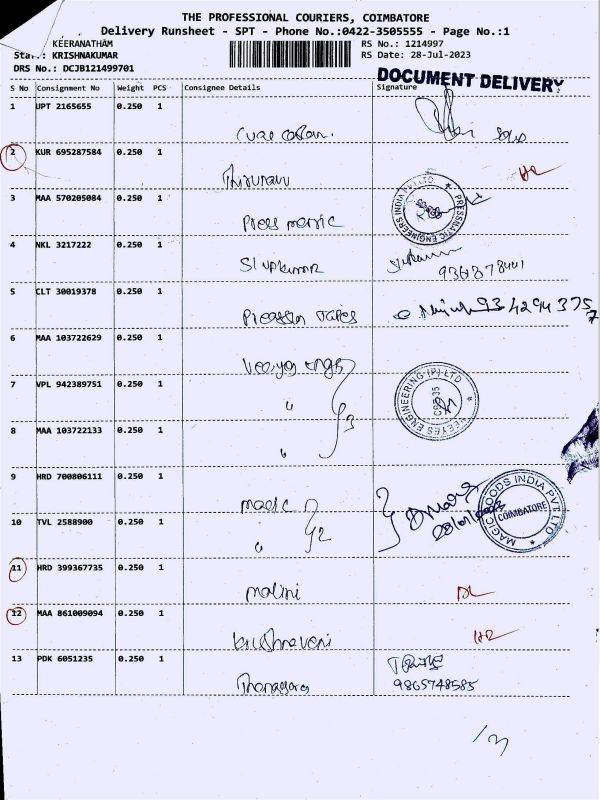 THE PROFESSIONAL COURIERS, COIMBATORE
Delivery Runsheet - SPT - Phone No.:0422-3505555 - Page No.:1
KEERANATHAM
RS No.: 1214997
Staff: KRISHNAKUMAR
RS Date: 28-Jul-2023
DRS No.: DCJB121499701
DOCUMENT DELIVERY
S No Consignment No Weight PCS Consignee Details Signature
1 UPT 2165655 0.250 1
2 KUR 695287584 0.250 1
3 MAA 570205084 0.250 1
PRESSMATIC ENGINEERS INDIA PVT LTD
4 NKL 3217222 0.250 1
Sivakumar
5 CLT 30019378 0.250 1
6 MAA 103722629 0.250 1
Veeyes Engg
7 VPL 942389751 0.250 1
"
VEEYES ENGINEERING (P) LTD
8 MAA 103722133 0.250 1
" 3
9 HRD 700806111 0.250 1
Magic
10 TVL 2588900 0.250 1
" 2
MAGIC WOODS INDIA PVT LTD
COIMBATORE
11 HRD 399367735 0.250 1
Malini DL
12 MAA 861009094 0.250 1
Krishnaveni
13 PDK 6051235 0.250 1
9865748585